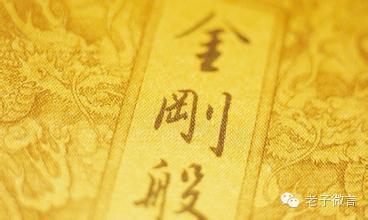 金
剛
般
老子微言